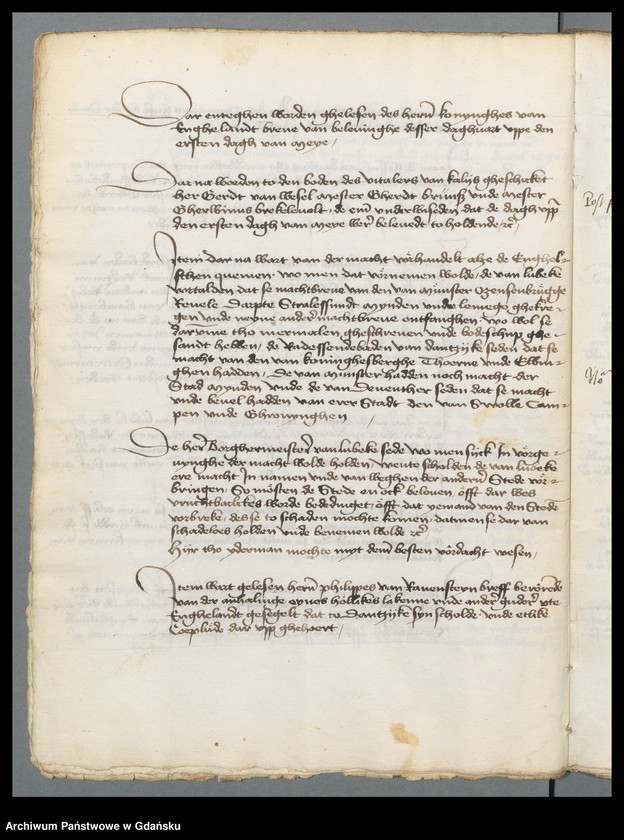 Dar enteghen worden ghelesen des herñ konynghes van
Enghelandt breue van beleuinghe desser daghuart vppe den
ersten dagh van Meye /
Dar na worden to den boden des vitalers van kalijs gheschicket
her Gerdt van wesel Mester Gherdt bruns vnde Mester
Gherwinus brekeleuolt / de em vnderwiseden dat de dagh vpp
den ersten dagh van Meye wer beleuedt to holdende /
Item dar na wart van der macht vorhandelt alze de Enghel-
schen quemen wo men dat vornemen wolde / de van lubeke
vortalden dat se machtbreue van den van Munster Ozenbrugge
Reuele Darpte Stralessundt Mynden vnde lemego ghekre-
gen vnde neyne ander machtbreue entfanghen / wo wol se
darvmme tho mermalen gheschreuen vnde bodeschup ghe-
sandt hebben / de Radessendebaden van dantzyke seden dat se
macht van den van koninghesberghe Thoerne vnde Elbin-
ghen hadden / De van Munster hadden noch macht der
Stad Mynden vnde de van Deuenther seden dat se macht
vnde beuel hadden van erer Stadt den van Swolle Cam-
pen vnde Ghronynghen /
De her Borghermeister van lubeke sede wo men sijck In vorge-
nynghe der macht wolde holden / wente scholden de van lubeke
ere macht In namen vnde van weghen der anderñ Stede vor-
bringen / So mosten de Stede en ock belouen / offt dar wes
vruchtbarlikes worde bededinget / offt dar yemand van den Steden
vorbreke / des se to schaden mochte komen / dat men se dar van
schadelos holden vnde benemen wolde
Hijr tho yderman mochte myt dem besten vordacht wesen /
Item wart gelesen herñ philippes van Rauenstern breff berorende
van der anhalinge eynes hollikes lakenne vnde ander guder vte
Enghelandt gesegelt dat to Dantzyke syn scholde vnde etlike
Coeplude dar vpp ghehoert /
Post
No
Archiwum Państwowe w Gdańsku